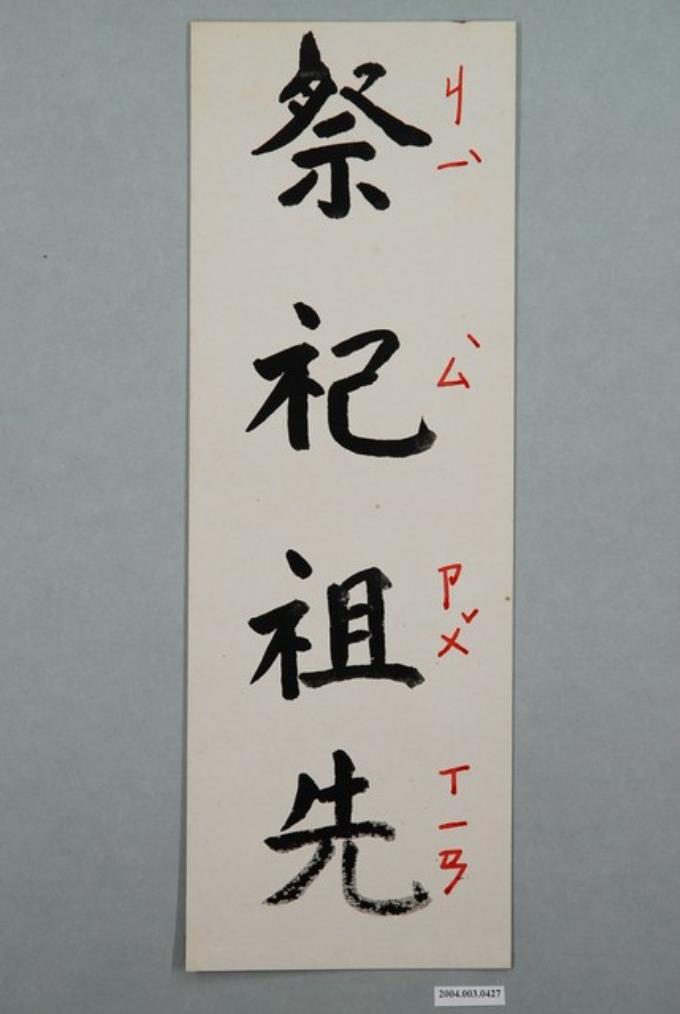 祭祀祖先
ㄐㄧˋ
ㄙˋ
ㄗㄨˇ
ㄒㄧㄢ
2004.003.0427